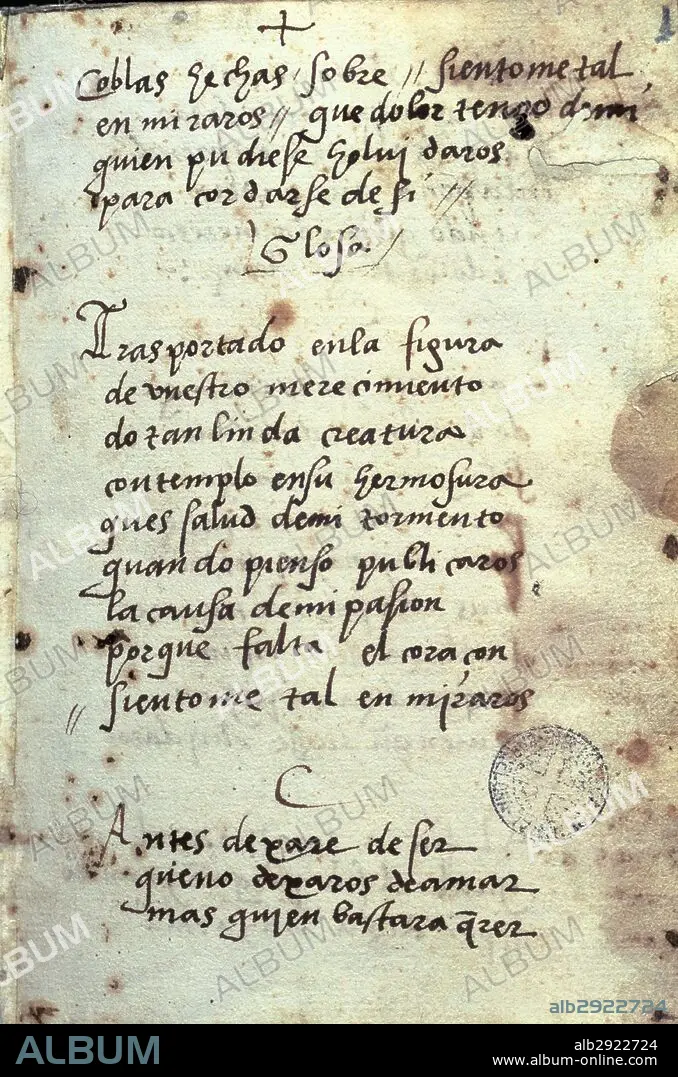 +
1
Coblas hechas sobre // sientome tal
en miraros // que dolor tengo d mi
quien pudiese holuidaros
para cordarse de si //
Glosa
Trasportado enla figura
de vuestro merecimiento
do tan linda creatura
contemplo ensu hermosura
ques salud demi tormento
quando pienso publicaros
la causa demi pasion
porque falta el coraçon
// sientome tal en miraros
C
Antes dexare de ser
queno dexaros deamar
mas quien bastara q̄rer
ALBUM
alb2922724
ALBUM
alb2922724
www.album-online.com